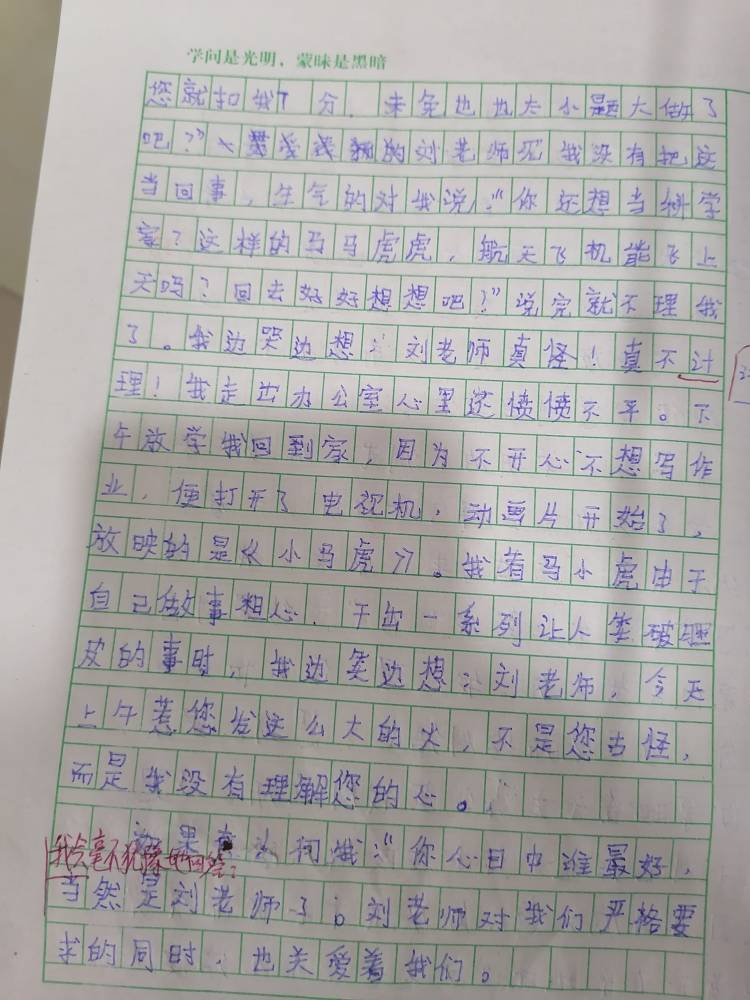 学问是光明，蒙昧是黑暗
您就扣我7分，未免也也太小题大做了
吧？”的刘老师见我没有把这
当回事，生气的对我说：“你还想当科学
家？这样的马马虎虎，航天飞机能飞上
天吗？回去好好想想吧？”说完就不理我
了。我边哭边想：刘老师真怪！真不计
理！我走出办公室心里还愤愤不平。下
午放学我回到家，因为不开心不想写作
业，便打开了电视机，动画片开始了，
放映的是《小马虎》。我看马小虎由于
自己做事粗心，干出一系列让人笑破肚
皮的事时，我边笑边想：刘老师，今天
上午惹您发这么大的火，不是您古怪，
而是我没有理解您的心。
如果有人问我：“你心目中谁最好，
我会毫不犹豫地回答：
当然是刘老师了。刘老师对我们严格要
求的同时，也关爱着我们。